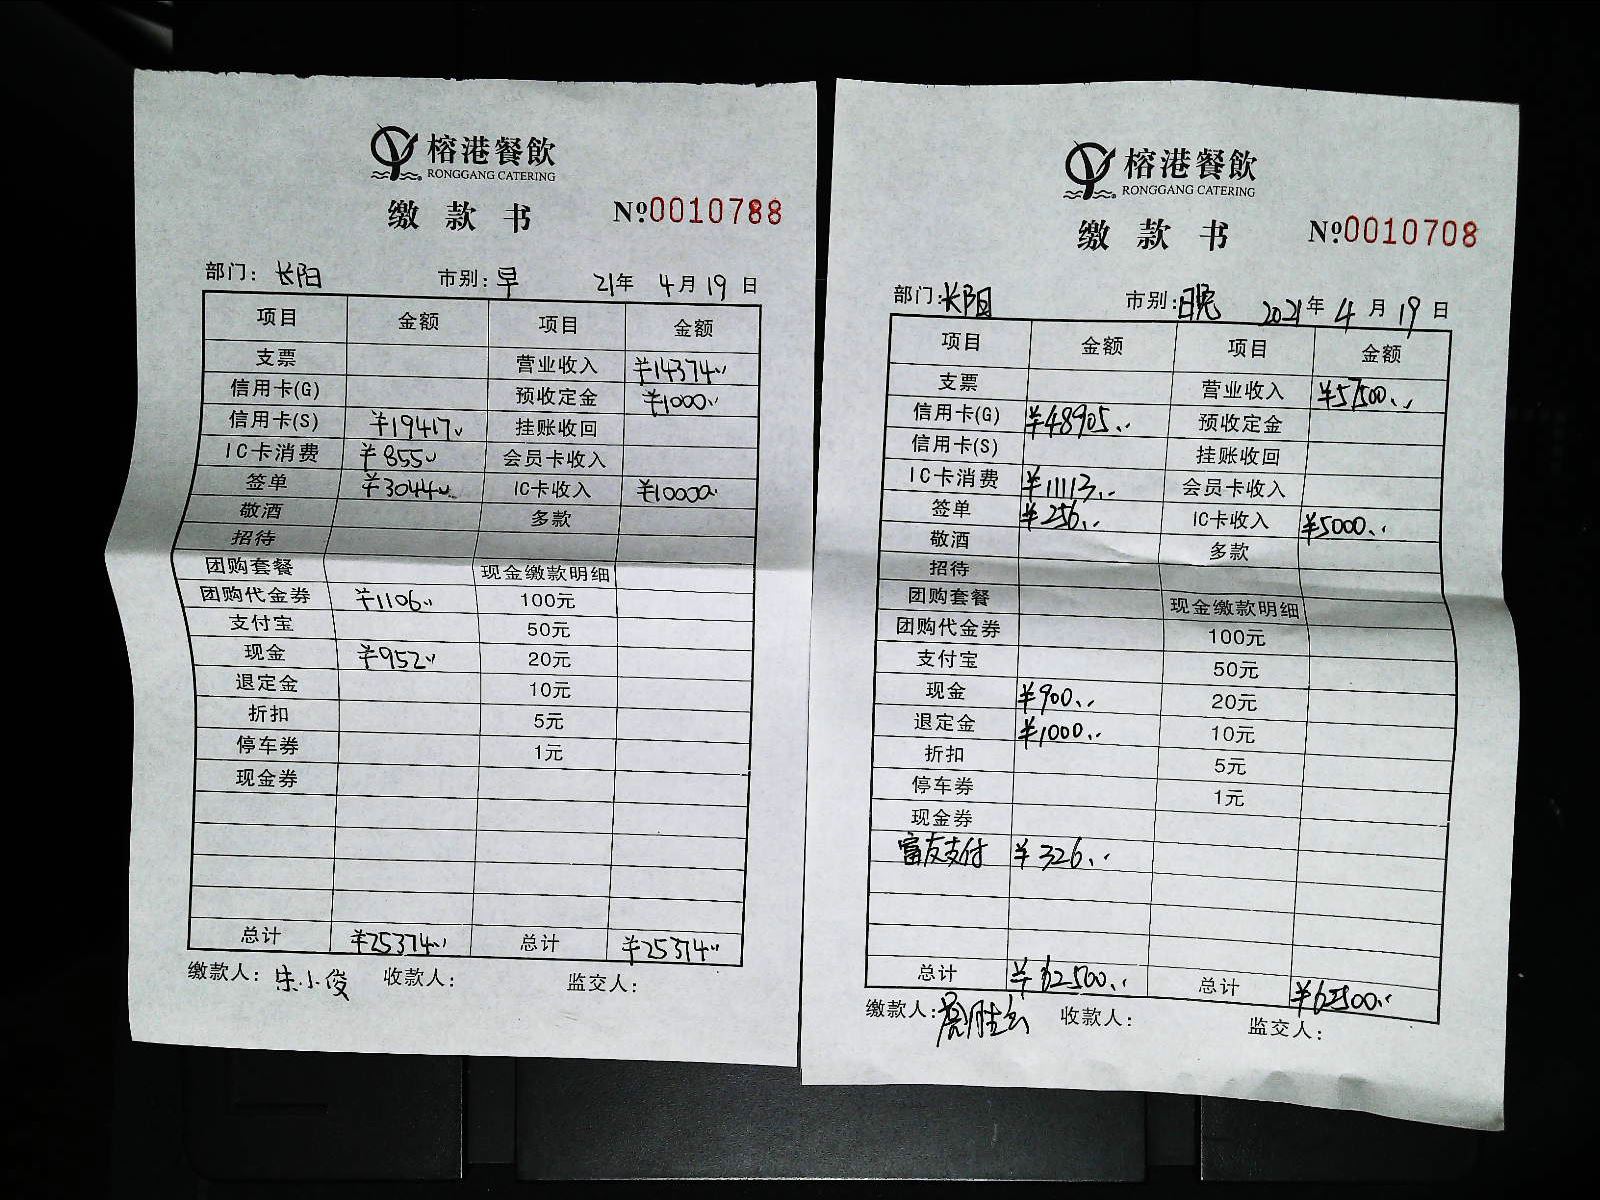 榕港餐飲
RONGGANG CATERING
缴款书 №0010788
部门: 长阳 市别: 早 21年 4月19日
项目 金额 项目 金额
支票 营业收入 ¥14374
信用卡(G) 预收定金 ¥1000
信用卡(S) ¥19417 挂账收回
IC卡消费 ¥855 会员卡收入
签单 ¥3044 IC卡收入 ¥10000
敬酒 多款
招待
团购套餐 现金缴款明细
团购代金券 ¥1106 100元
支付宝 50元
现金 ¥952 20元
退定金 10元
折扣 5元
停车券 1元
现金券
总计 ¥25374 总计 ¥25374
缴款人: 朱小俊 收款人: 监交人:
榕港餐飲
RONGGANG CATERING
缴款书 №0010708
部门: 长阳 市别: 晚 2021年 4月19日
项目 金额 项目 金额
支票 营业收入 ¥57500
信用卡(G) ¥48905 预收定金
信用卡(S) 挂账收回
IC卡消费 ¥11113 会员卡收入
签单 ¥256 IC卡收入 ¥5000
敬酒 多款
招待
团购套餐 现金缴款明细
团购代金券 100元
支付宝 50元
现金 ¥900 20元
退定金 ¥1000 10元
折扣 5元
停车券 1元
现金券
富友支付 ¥326
总计 ¥62500 总计 ¥62500
缴款人: 收款人: 监交人: